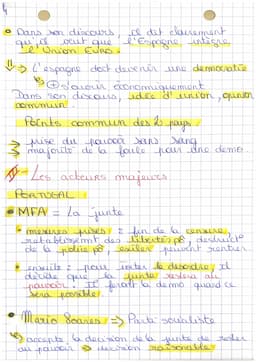 • Dans son discours, il dit clairement
qu'il veut que l'Espagne intègre
l'Union Euro.
⇒ L'espagne doit devenir une democratie
⊕ s'ouvrir économiquement
Dans son discours, idée d'union, opinion
commun.
Points commun des 2 pays
→ prise du pouvoir sans sang
→ majorité de la foule pour une démo.
II - Les acteurs majeurs
PORTUGAL
• MFA = La junte
• mesures prises : fin de la censure,
rétablissemt des libertés pô, destruct°
de la police pô, exilés peuvent rentrer
• ensuite : pour éviter le désordre, il
décide que la junte restera au
pouvoir. Il feront la démo quand ce
sera possible.
• Mario Soares ⇒ Parti socialiste
↳ accepte la décision de la junte de rester
au pouvoir ⇒ décision raisonable